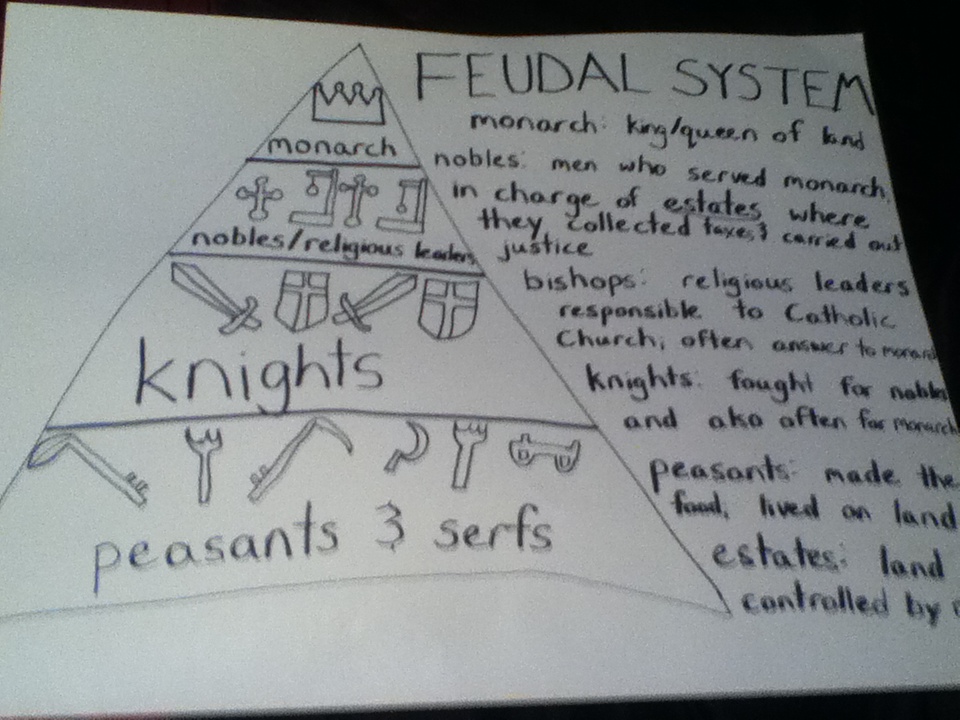 FEUDAL SYSTEM
monarch
nobles/religious leaders
knights
peasants & serfs
monarch: king/queen of land
nobles: men who served monarch,
in charge of estates where
they collected taxes & carried out
justice
bishops: religious leaders
responsible to Catholic
Church, often answer to monarch
knights: fought for nobles
and also often for monarch
peasants: made the
food, lived on land
estates: land
controlled by